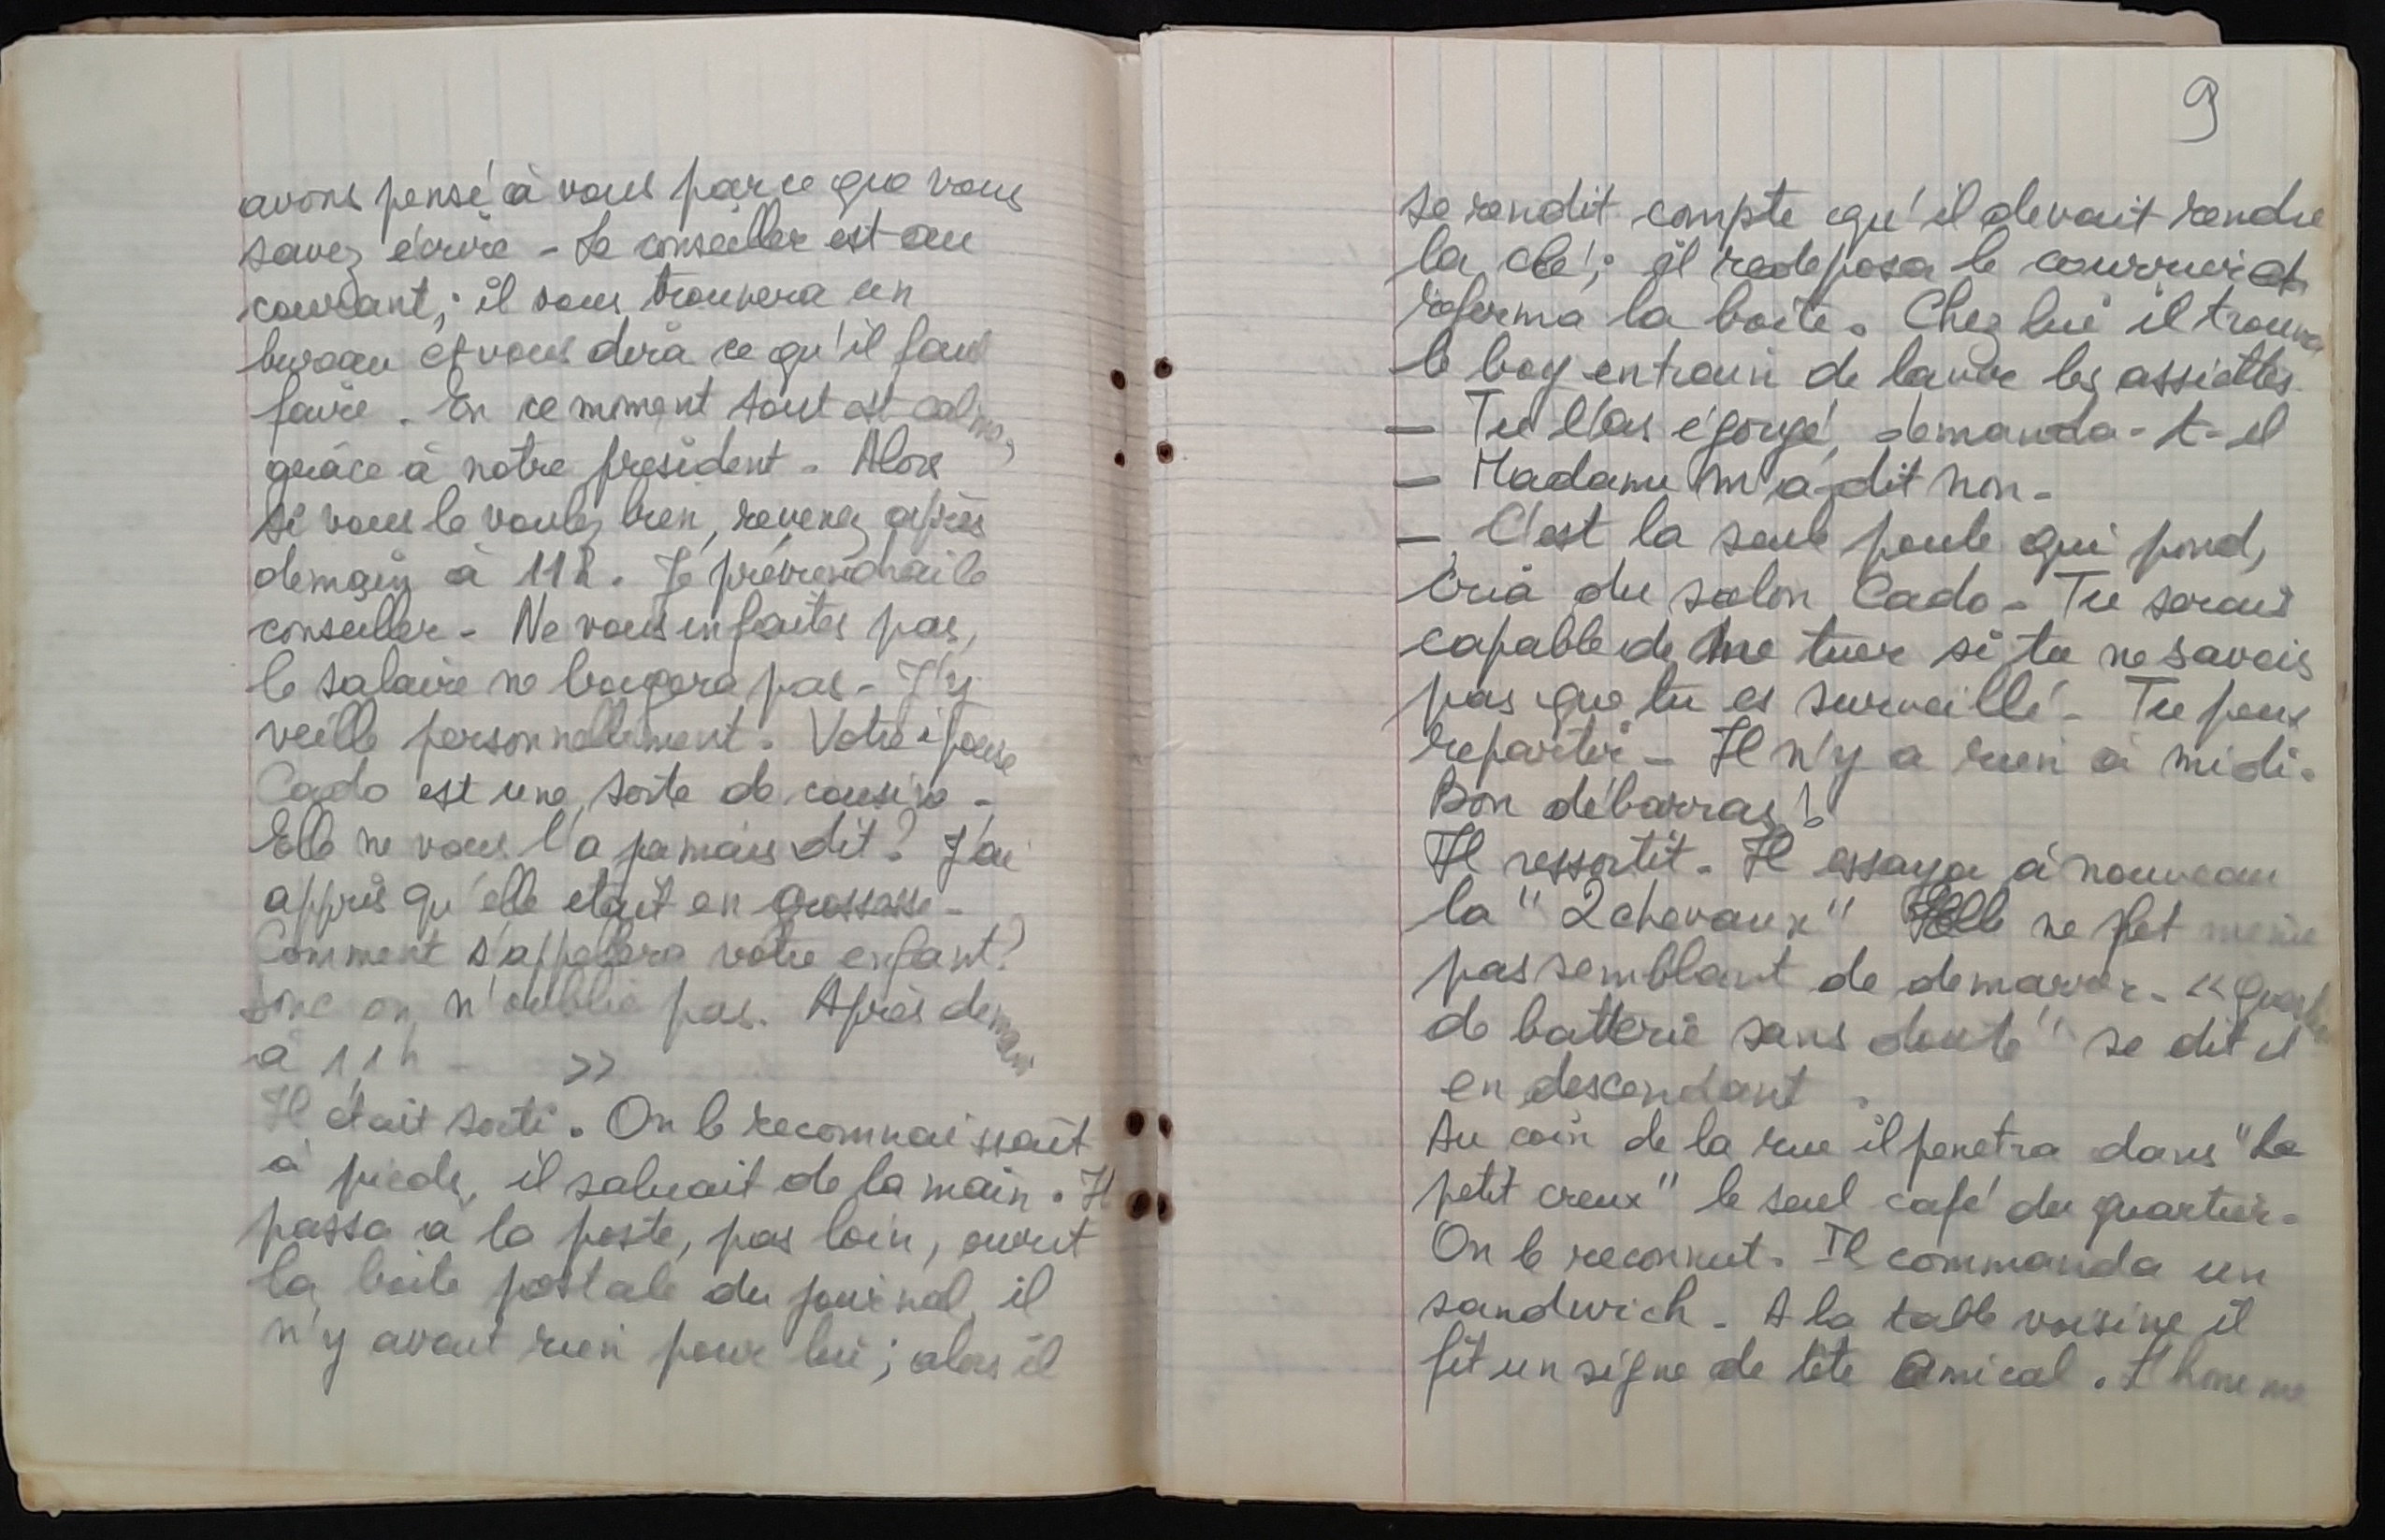 avons pensé à vous parce que vous
savez écrire - Le conseiller est au
courant ; il vous trouvera un
bureau et vous dira ce qu'il faut
faire . En ce moment tout est calme,
grâce à notre président . Alors
si vous le voulez bien, revenez après
demain à 11h . Je préviendrai le
conseiller - Ne vous en faites pas,
le salaire ne bougera pas - J'y
veille personnellement . Votre épouse
Cado est une sorte de cousine -
Elle ne vous l'a jamais dit ? J'ai
appris qu'elle était en grossesse -
Comment s'appellera votre enfant ?
Donc on n'oublie pas. Après demain
à 11h - >>
Il était sorti . On le reconnaissait
à pieds, il saluait de la main . Il
passa à la poste, pas loin, ouvrit
la boite postale du journal, il
n'y avait rien pour lui ; alors il
9
se rendit compte qu'il devait rendre
la clé ; il redeposa le courrier et
referma la boite . Chez lui il trouva
le boy entrain de laver les assiettes
— Tu l'as égorgé, demanda-t-il
— Madame m'a dit non -
— C'est la seule poule qui pond,
cria du salon Cado - Tu serais
capable de me tuer si tu ne savais
pas que tu es surveillé - Tu peux
repartir - Il n'y a rien à midi .
Bon débarras !
Il ressortit . Il essaya à nouveau
la "2 chevaux" Elle ne fit même
pas semblant de demarrer - "
de batterie sans doute" se dit il
en descendant .
Au coin de la rue il penetra dans "Le
petit creux" le seul café du quartier -
On le reconnut . Il commanda un
sandwich - A la table voisine il
fit un signe de tête amical . L'homme